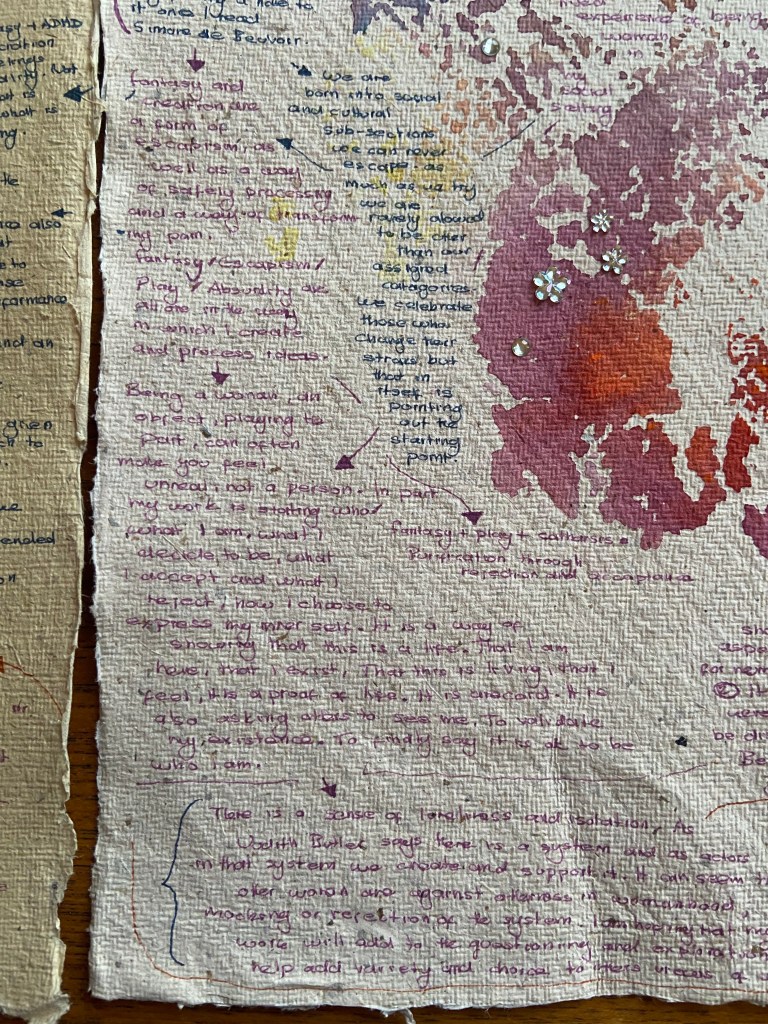 asy + ADHD
also
to
performance
and an
given
to
tended
a note to
it one I read
Simone de Beauvoir.
experience of being
woman
in
my
social
setting
fantasy and
creation are
a form of
escapism, as
well as a way
of safely processing
and a way of transform
ing pain.
fantasy/escapism/
Play & Absurdity are
all are in the way
in which I create
and process ideas.
we are
born into social
and cultural
sub-sections
we can never
escape, as
much as we try
we are
rarely allowed
to be other
than our
assigned
catagories.
we celebrate
those who
change their
stars but
that in
itself is
pointing
out the
starting
point.
Being a woman, an
object, playing the
part, can often
make you feel
unreal, not a person. In part
my work is stating who/
what I am, what I
decide to be, what
I accept and what I
reject, how I choose to
express my inner self. It is a way of
showing that this is a life. That I am
here, that I exist, That this is living, that I
feel, it is a proof of life. It is a record. It is
also asking others to see me. To validate
my existance. To finally say it is ok to be
who I am.
fantasy + play + catharsis.
Purification through
rejection and acceptance
There is a sense of loneliness and isolation, As
Judith Butler says there is a system and as actors
in that system we create and support it. It can seem
other women are against otherness in womanhood,
Mocking or rejection of the system. I am hoping that my
work will add to the questioning and exploration
help add variety and choice to others